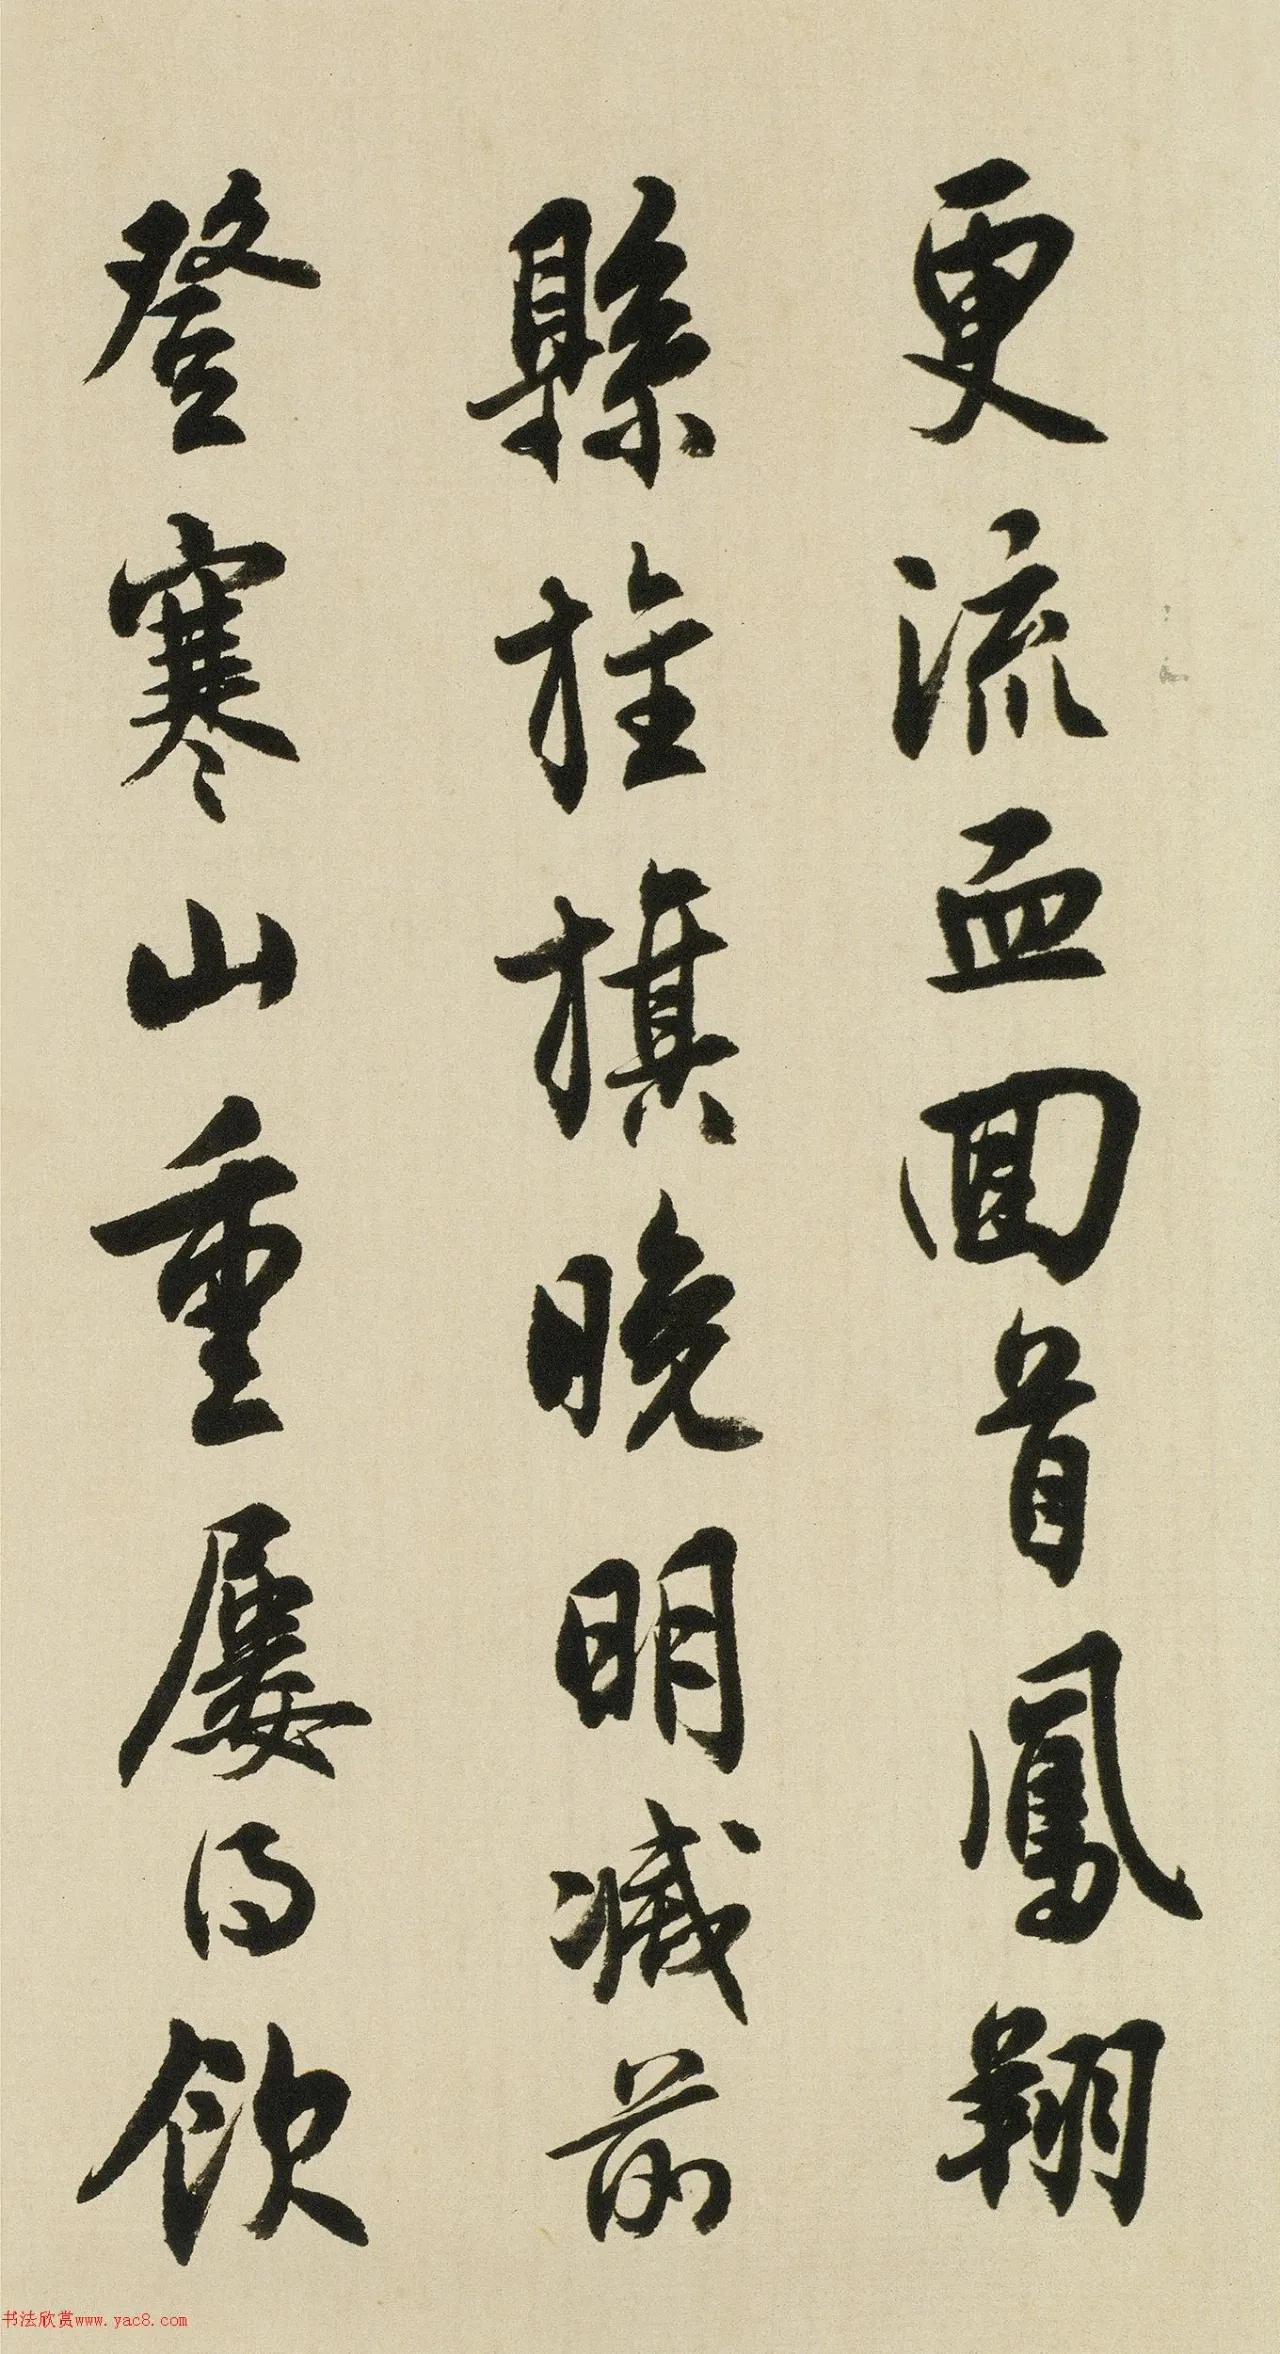 更流血回首鳳翔
縣旌旗晚明滅前
登寒山重屢得飲
书法欣赏www.yac8.com